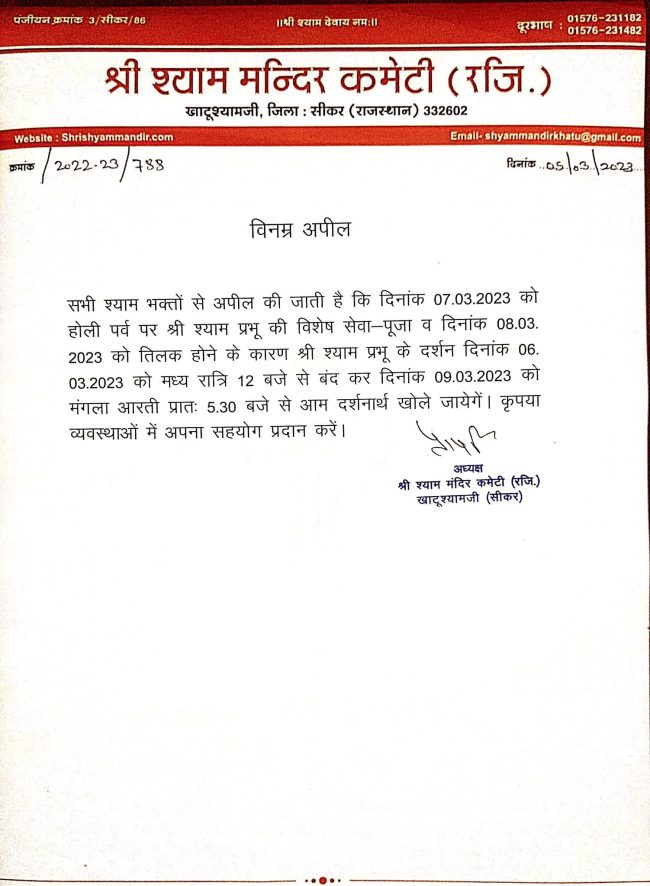 पंजीयन क्रमांक 3/सीकर/86
॥श्री श्याम देवाय नमः॥
दूरभाष : 01576-231182
01576-231482
श्री श्याम मन्दिर कमेटी (रजि.)
खाटूश्यामजी, जिला : सीकर (राजस्थान) 332602
Website : Shrishyammandir.com
Email- shyammandirkhatu@gmail.com
क्रमांक /2022-23/788
दिनांक ..05/03/2023...
विनम्र अपील
सभी श्याम भक्तों से अपील की जाती है कि दिनांक 07.03.2023 को
होली पर्व पर श्री श्याम प्रभू की विशेष सेवा–पूजा व दिनांक 08.03.
2023 को तिलक होने के कारण श्री श्याम प्रभू के दर्शन दिनांक 06.
03.2023 को मध्य रात्रि 12 बजे से बंद कर दिनांक 09.03.2023 को
मंगला आरती प्रातः 5.30 बजे से आम दर्शनार्थ खोले जायेगें। कृपया
व्यवस्थाओं में अपना सहयोग प्रदान करें।
अध्यक्ष
श्री श्याम मंदिर कमेटी (रजि.)
खाटूश्यामजी (सीकर)